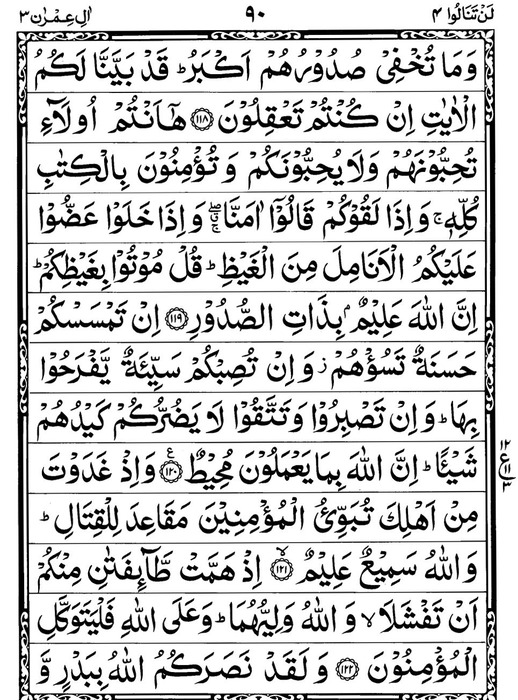 لَنْ تَنَالُوا ۴ ۹۰ اٰلِ عِمْرٰن ۳
وَمَا تُخْفِيْ صُدُوْرُهُمْ اَكْبَرُ ؕ قَدْ بَيَّنَّا لَكُمُ
الْاٰيٰتِ اِنْ كُنْتُمْ تَعْقِلُوْنَ ﴿۱۱۸﴾ هٰۤاَنْتُمْ اُولَآءِ
تُحِبُّوْنَهُمْ وَلَا يُحِبُّوْنَكُمْ وَتُؤْمِنُوْنَ بِالْكِتٰبِ
كُلِّهٖ ۚ وَاِذَا لَقُوْكُمْ قَالُوْۤا اٰمَنَّا ۖۗۚ وَاِذَا خَلَوْا عَضُّوْا
عَلَيْكُمُ الْاَنَامِلَ مِنَ الْغَيْظِ ؕ قُلْ مُوْتُوْا بِغَيْظِكُمْ ؕ
اِنَّ اللّٰهَ عَلِيْمٌۢ بِذَاتِ الصُّدُوْرِ ﴿۱۱۹﴾ اِنْ تَمْسَسْكُمْ
حَسَنَةٌ تَسُؤْهُمْ ز وَاِنْ تُصِبْكُمْ سَيِّئَةٌ يَّفْرَحُوْا
بِهَا ؕ وَاِنْ تَصْبِرُوْا وَتَتَّقُوْا لَا يَضُرُّكُمْ كَيْدُهُمْ
شَيْـًٔا ؕ اِنَّ اللّٰهَ بِمَا يَعْمَلُوْنَ مُحِيْطٌ ﴿۱۲۰﴾ ع وَاِذْ غَدَوْتَ
۱۲
ع ۱۱
۳
مِنْ اَهْلِكَ تُبَوِّئُ الْمُؤْمِنِيْنَ مَقَاعِدَ لِلْقِتَالِ ؕ
وَاللّٰهُ سَمِيْعٌ عَلِيْمٌ ﴿۱۲۱﴾ ۙ اِذْ هَمَّتْ طَّآئِفَتٰنِ مِنْكُمْ
اَنْ تَفْشَلَا ۙ وَاللّٰهُ وَلِيُّهُمَا ؕ وَعَلَى اللّٰهِ فَلْيَتَوَكَّلِ
الْمُؤْمِنُوْنَ ﴿۱۲۲﴾ وَلَقَدْ نَصَرَكُمُ اللّٰهُ بِبَدْرٍ وَّ